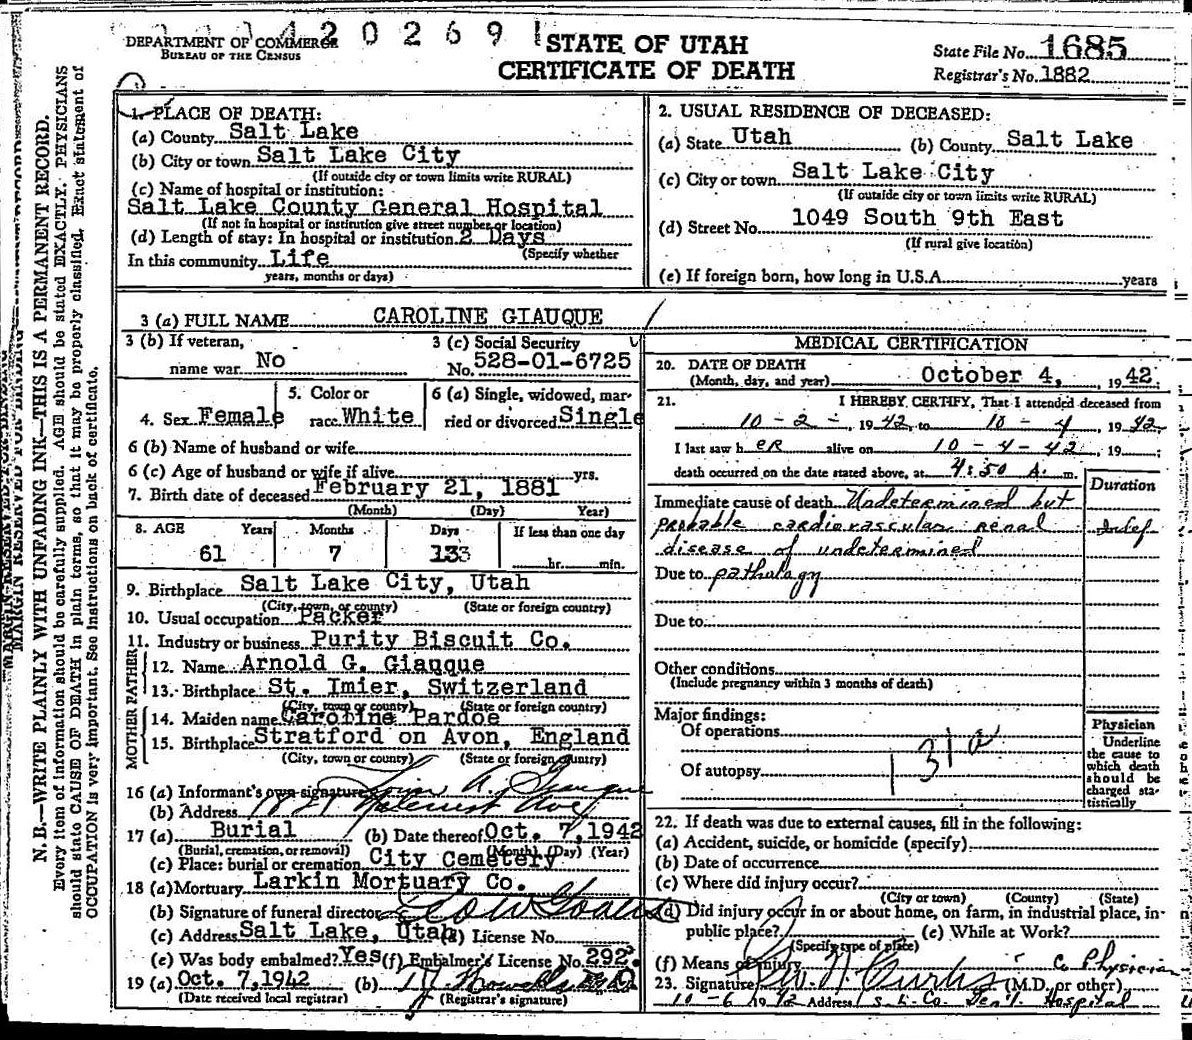 420269
DEPARTMENT OF COMMERCE
BUREAU OF THE CENSUS
STATE OF UTAH
CERTIFICATE OF DEATH
State File No. 1685
Registrar's No. 1882
N. B.—WRITE PLAINLY WITH UNFADING INK—THIS IS A PERMANENT RECORD.
Every item of information should be carefully supplied. AGE should be stated EXACTLY. PHYSICIANS
should state CAUSE OF DEATH in plain terms, so that it may be properly classified. Exact statement of
OCCUPATION is very important. See instructions on back of certificate.
1. PLACE OF DEATH:
(a) County Salt Lake
(b) City or town Salt Lake City
(If outside city or town limits write RURAL)
(c) Name of hospital or institution:
Salt Lake County General Hospital
(If not in hospital or institution give street number or location)
(d) Length of stay: In hospital or institution 2 Days
(Specify whether
In this community Life
years, months or days)
2. USUAL RESIDENCE OF DECEASED:
(a) State Utah (b) County Salt Lake
(c) City or town Salt Lake City
(If outside city or town limits write RURAL)
(d) Street No. 1049 South 9th East
(If rural give location)
(e) If foreign born, how long in U.S.A. years
3 (a) FULL NAME CAROLINE GIAUQUE
3 (b) If veteran,
name war No
3 (c) Social Security
No. 528-01-6725
4. Sex Female
5. Color or
race White
6 (a) Single, widowed, mar-
ried or divorced Single
6 (b) Name of husband or wife
6 (c) Age of husband or wife if alive yrs.
7. Birth date of deceased February 21, 1881
(Month) (Day) Year)
8. AGE Years Months Days If less than one day
61 7 13 hr. min.
9. Birthplace Salt Lake City, Utah
(City, town, or county) (State or foreign country)
10. Usual occupation Packer
11. Industry or business Purity Biscuit Co.
FATHER
12. Name Arnold G. Giauque
13. Birthplace St. Imier, Switzerland
(City, town or county) (State or foreign country)
MOTHER
14. Maiden name Caroline Pardoe
15. Birthplace Stratford on Avon, England
(City, town or county) (State or foreign country)
16 (a) Informant's own signature A. Giauque
(b) Address Ave
17 (a) Burial (b) Date thereof Oct. 7, 1942
(Burial, cremation, or removal) (Month) (Day) (Year)
(c) Place: burial or cremation City Cemetery
18 (a) Mortuary Larkin Mortuary Co.
(b) Signature of funeral director
(c) Address Salt Lake, Utah (d) License No.
(e) Was body embalmed? Yes (f) Embalmer's License No. 292
19 (a) Oct. 7, 1942 (b)
(Date received local registrar) (Registrar's signature)
MEDICAL CERTIFICATION
20. DATE OF DEATH
(Month, day, and year) October 4, 1942.
21. I HEREBY CERTIFY, That I attended deceased from
10-2-, 1942, to 10-4, 1942.
I last saw her alive on 10-4-42, 19
death occurred on the date stated above, at 4:50 A. m.
Duration
Immediate cause of death Undetermined but
probable cardiovascular renal Indef
disease of undetermined
Due to pathology
Due to
Other conditions
(Include pregnancy within 3 months of death)
Major findings:
Of operations
Of autopsy
131a
Physician
Underline
the cause to
which death
should be
charged sta-
tistically
22. If death was due to external causes, fill in the following:
(a) Accident, suicide, or homicide (specify)
(b) Date of occurrence
(c) Where did injury occur?
(City or town) (County) (State)
(d) Did injury occur in or about home, on farm, in industrial place, in-
public place? (e) While at Work?
(Specify type of place)
(f) Means of injury Co Physician
23. Signature Curtis (M.D. or other)
10-6 1942 Address S. L. Co. Gen'l. Hospital